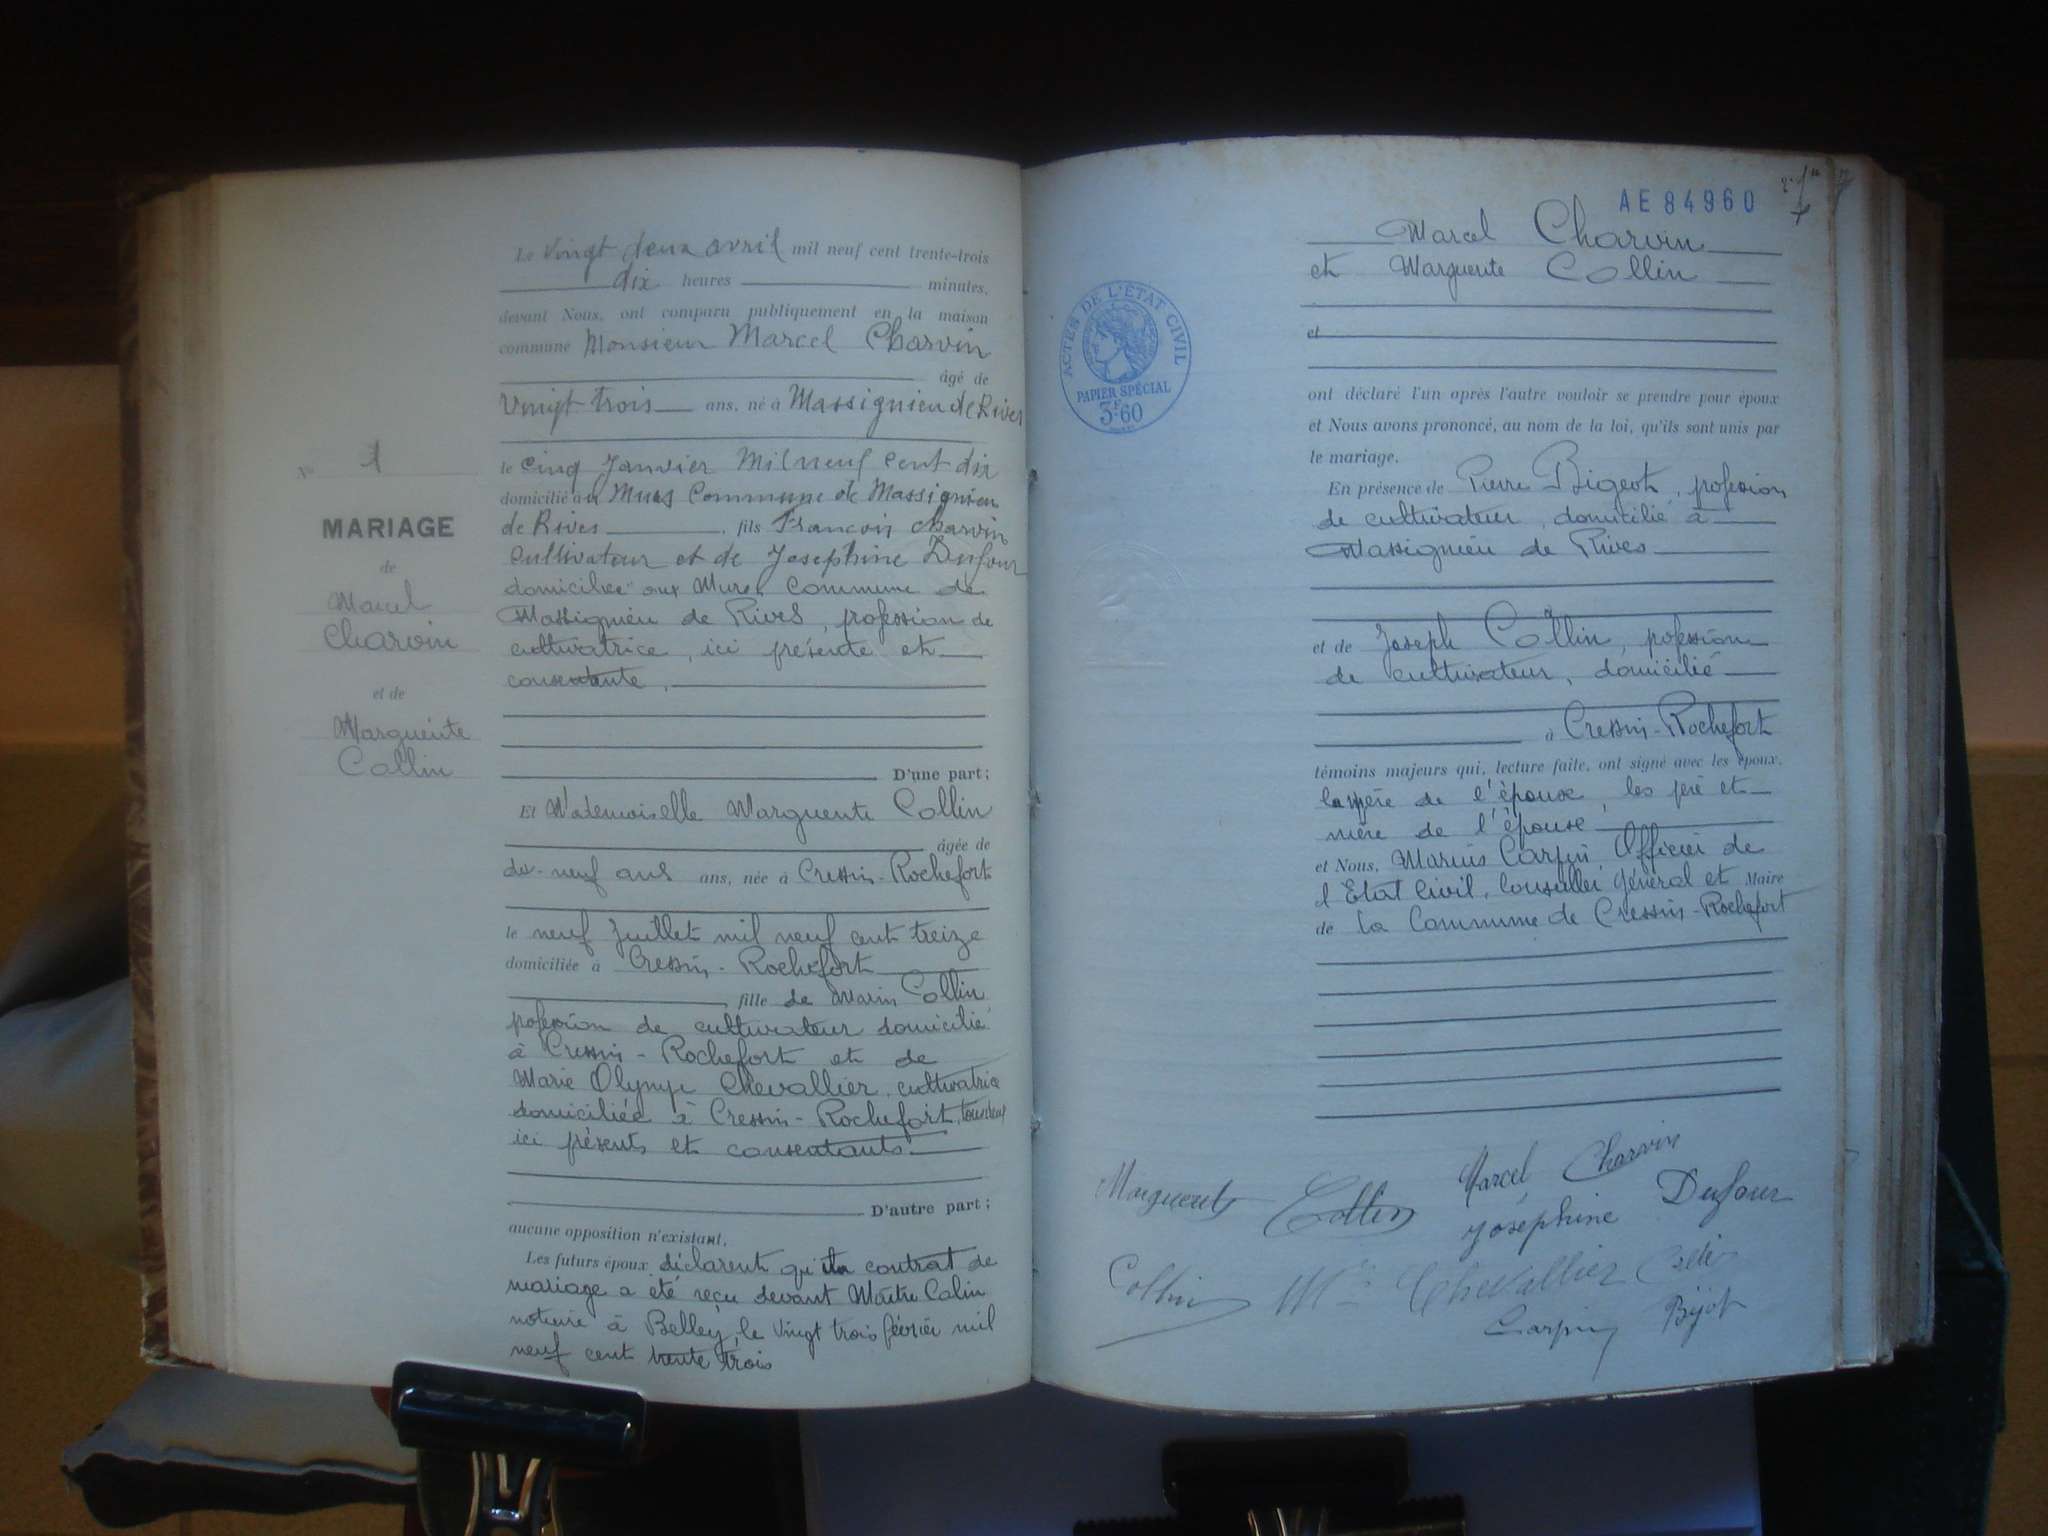 Le Vingt deux avril mil neuf cent trente-trois
dix heures minutes,
devant Nous, ont comparu publiquement en la maison
commune Monsieur Marcel Charvin
âgé de
Vingt trois ans, né à Massignieu de Rives
le cinq Janvier Mil neuf cent dix
domicilié au Murs Commune de Massignieu
de Rives, fils Francois Charvin
cultivateur et de Josephine Dufour
domiciliée aux Murs, commune de
Massignieu de Rives, profession de
cultivatrice, ici présente et
consentante,
D'une part;
Et Mademoiselle Marguerite Collin
âgée de
dix-neuf ans ans, née à Cressin-Rochefort
le neuf Juillet mil neuf cent treize
domiciliée à Cressin-Rochefort
, fille de Marin Collin
profession de cultivateur domicilié
à Cressin-Rochefort et de
Marie Olympe Chevallier, cultivatrice
domiciliée à Cressin-Rochefort, tous deux
ici présents et consentants.
D'autre part;
aucune opposition n'existant,
Les futurs époux déclarent qu'un contrat de
mariage a été reçu devant Maître Calin
notaire à Belley, le vingt trois février mil
neuf cent trente trois
N° 1
MARIAGE
de
Marcel
Charvin
et de
Marguerite
Collin
AE 84960
Marcel Charvin
et Marguerite Collin
et
ACTES DE L'ÉTAT CIVIL
PAPIER SPÉCIAL
3F60
ont déclaré l'un après l'autre vouloir se prendre pour époux
et Nous avons prononcé, au nom de la loi, qu'ils sont unis par
le mariage.
En présence de Pierre Bigeot, profession
de cultivateur, domicilié à
Massignieu de Rives
et de Joseph Collin, profession
de cultivateur, domicilié
à Cressin-Rochefort
témoins majeurs qui, lecture faite, ont signé avec les époux,
la mère de l'épouse, les père et
mère de l'épouse
et Nous, Marius Carpin Officier de
l'Etat Civil, Conseiller général et Maire
de la Commune de Cressin-Rochefort
Marguerite Collin Marcel Charvin
Joséphine Dufour
Collin Chevallier
Carpin Bijot